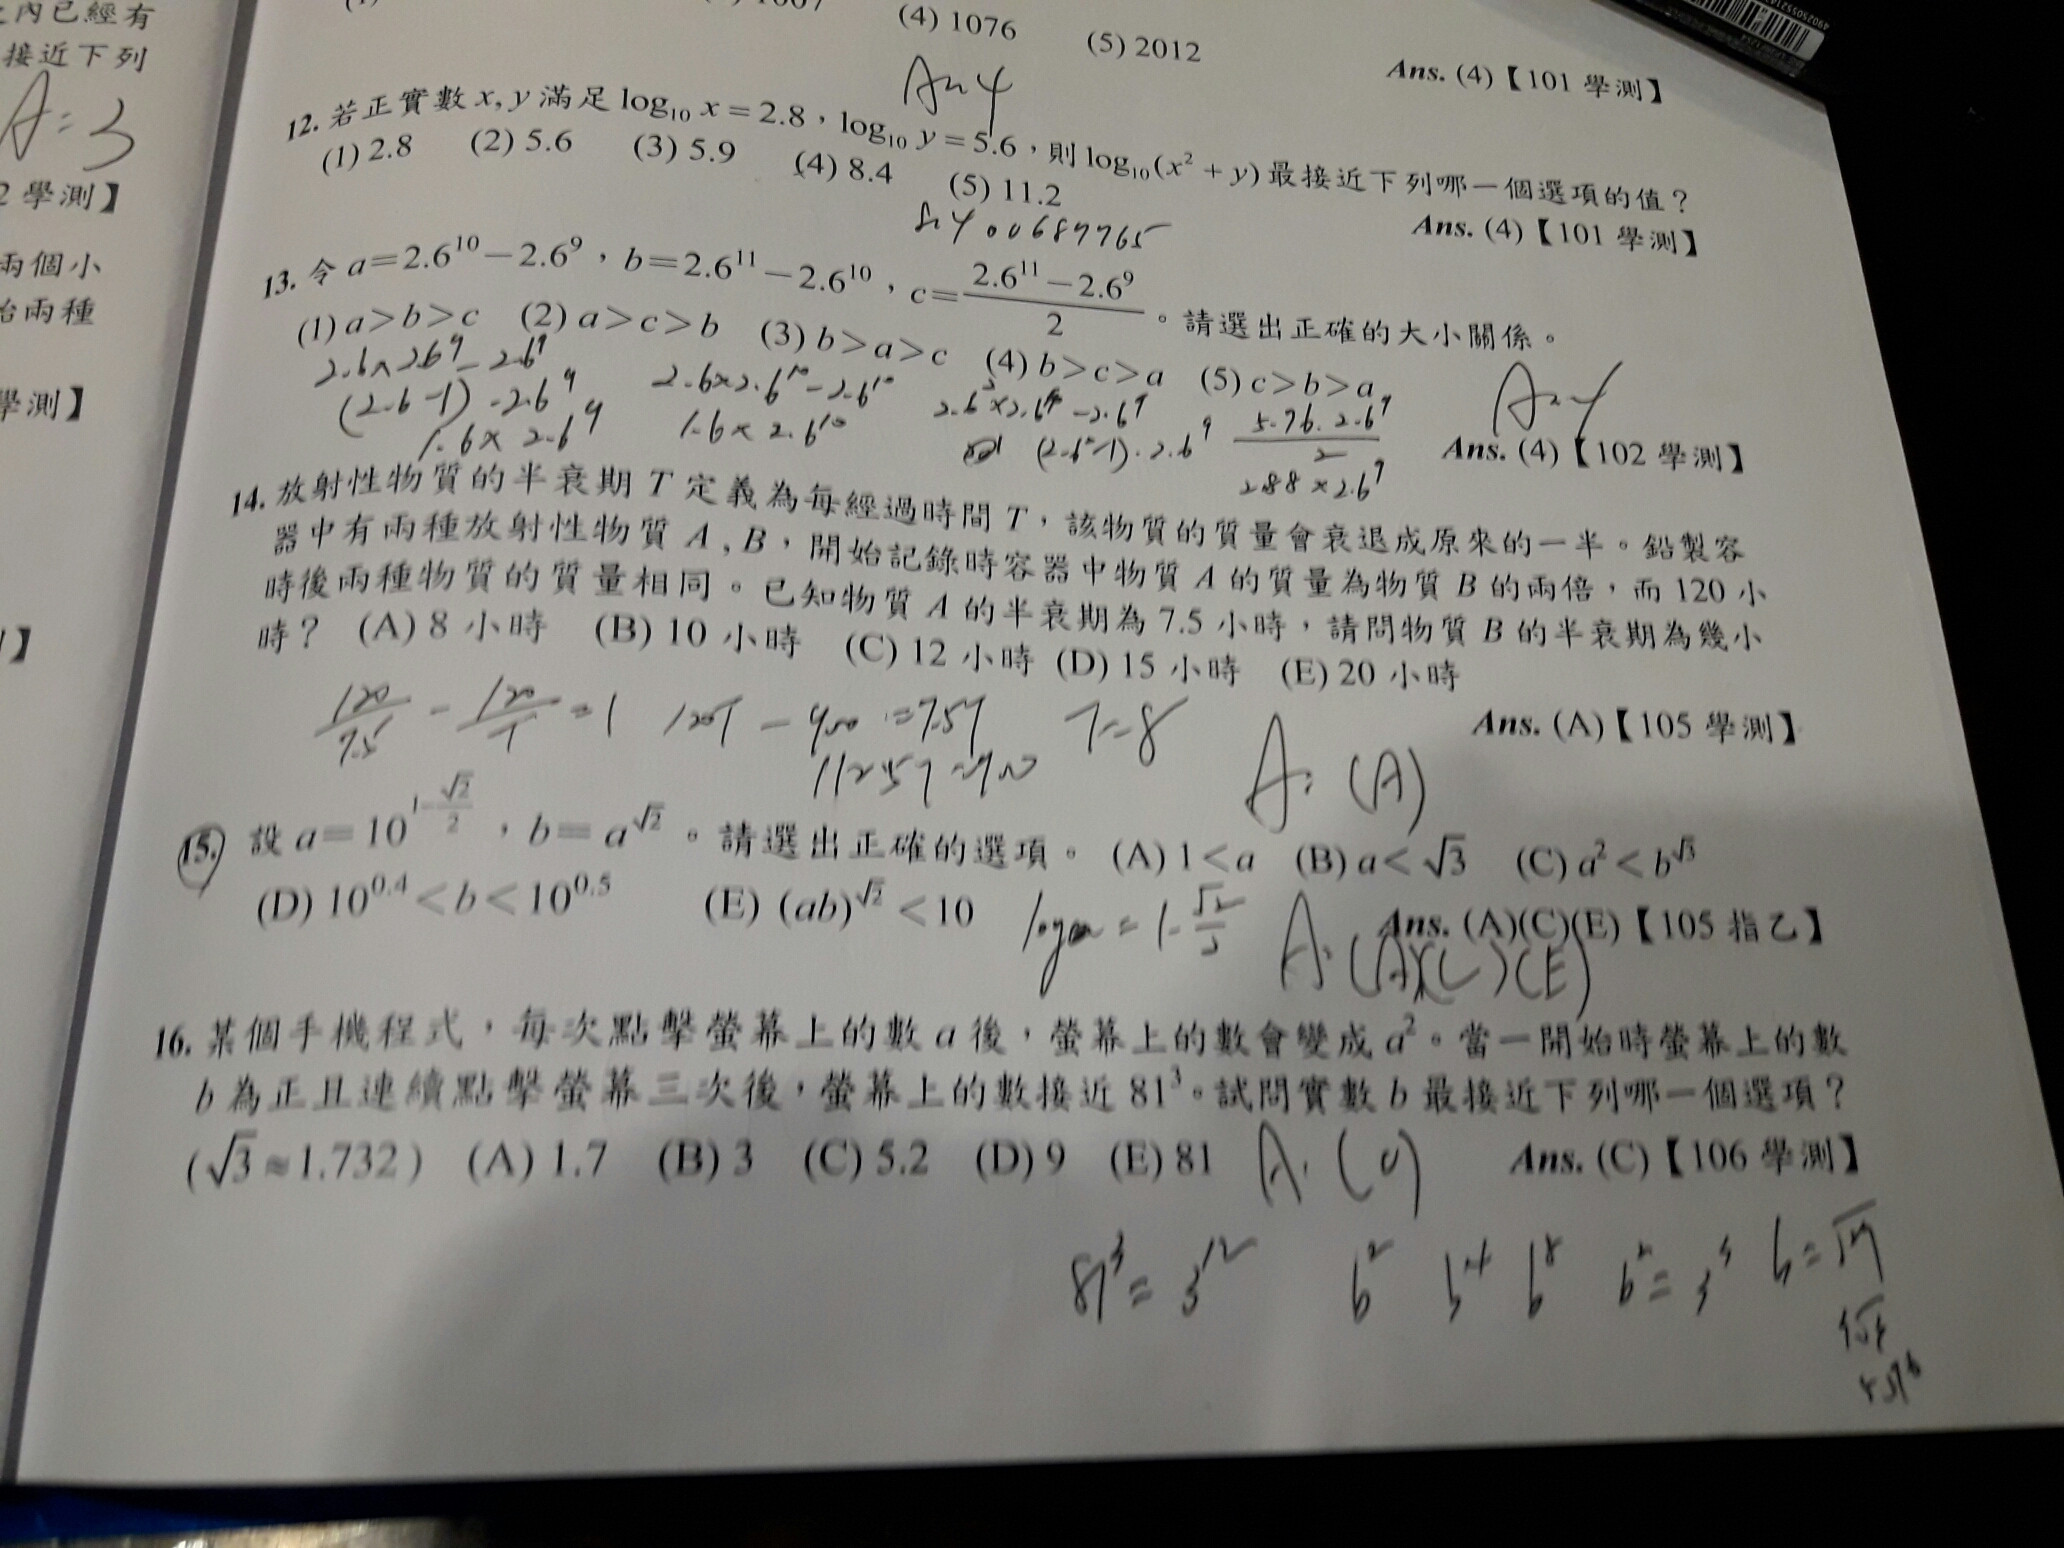 之內已經有
接近下列
A:3
2 學測】
兩個小
始兩種
學測】
】
(4) 1076
(5) 2012
Ans. (4)【101 學測】
12. 若正實數 x, y 滿足 log₁₀ x = 2.8，log₁₀ y = 5.6，則 log₁₀(x² + y) 最接近下列哪一個選項的值？
(1) 2.8 (2) 5.6 (3) 5.9 (4) 8.4 (5) 11.2
Ans. (4)【101 學測】
13. 令 a=2.6¹⁰−2.6⁹，b=2.6¹¹−2.6¹⁰，c=(2.6¹¹−2.6⁹)/2。請選出正確的大小關係。
(1) a>b>c (2) a>c>b (3) b>a>c (4) b>c>a (5) c>b>a
(2.6-1) -2.6⁹
1.6× 2.6⁹
2.6×2.6¹⁰-2.6¹⁰
1.6× 2.6¹⁰
2.6²×2.6⁹-2.6⁹
(2.6²-1)·2.6⁹
5.76·2.6⁹/2
2.88×2.6⁹
Ans. (4)【102 學測】
14. 放射性物質的半衰期 T 定義為每經過時間 T，該物質的質量會衰退成原來的一半。鉛製容
器中有兩種放射性物質 A , B，開始記錄時容器中物質 A 的質量為物質 B 的兩倍，而 120 小
時後兩種物質的質量相同。已知物質 A 的半衰期為 7.5 小時，請問物質 B 的半衰期為幾小
時？ (A) 8 小時 (B) 10 小時 (C) 12 小時 (D) 15 小時 (E) 20 小時
Ans. (A)【105 學測】
120/7.5 - 120/T = 1 120T - 900 = 7.5T T=8
A: (A)
15. 設 a=10^(1−√2/2)，b=a^√2。請選出正確的選項。 (A) 1<a (B) a<√3 (C) a²<b^√3
(D) 10^0.4<b<10^0.5 (E) (ab)^√2<10
Ans. (A)(C)(E)【105 指乙】
A: (A)(C)(E)
16. 某個手機程式，每次點擊螢幕上的數 a 後，螢幕上的數會變成 a²。當一開始時螢幕上的數
b 為正且連續點擊螢幕三次後，螢幕上的數接近 81³。試問實數 b 最接近下列哪一個選項？
(√3≈1.732) (A) 1.7 (B) 3 (C) 5.2 (D) 9 (E) 81
Ans. (C)【106 學測】
81³ = 3¹² b² b⁴ b⁸ b² = 3³